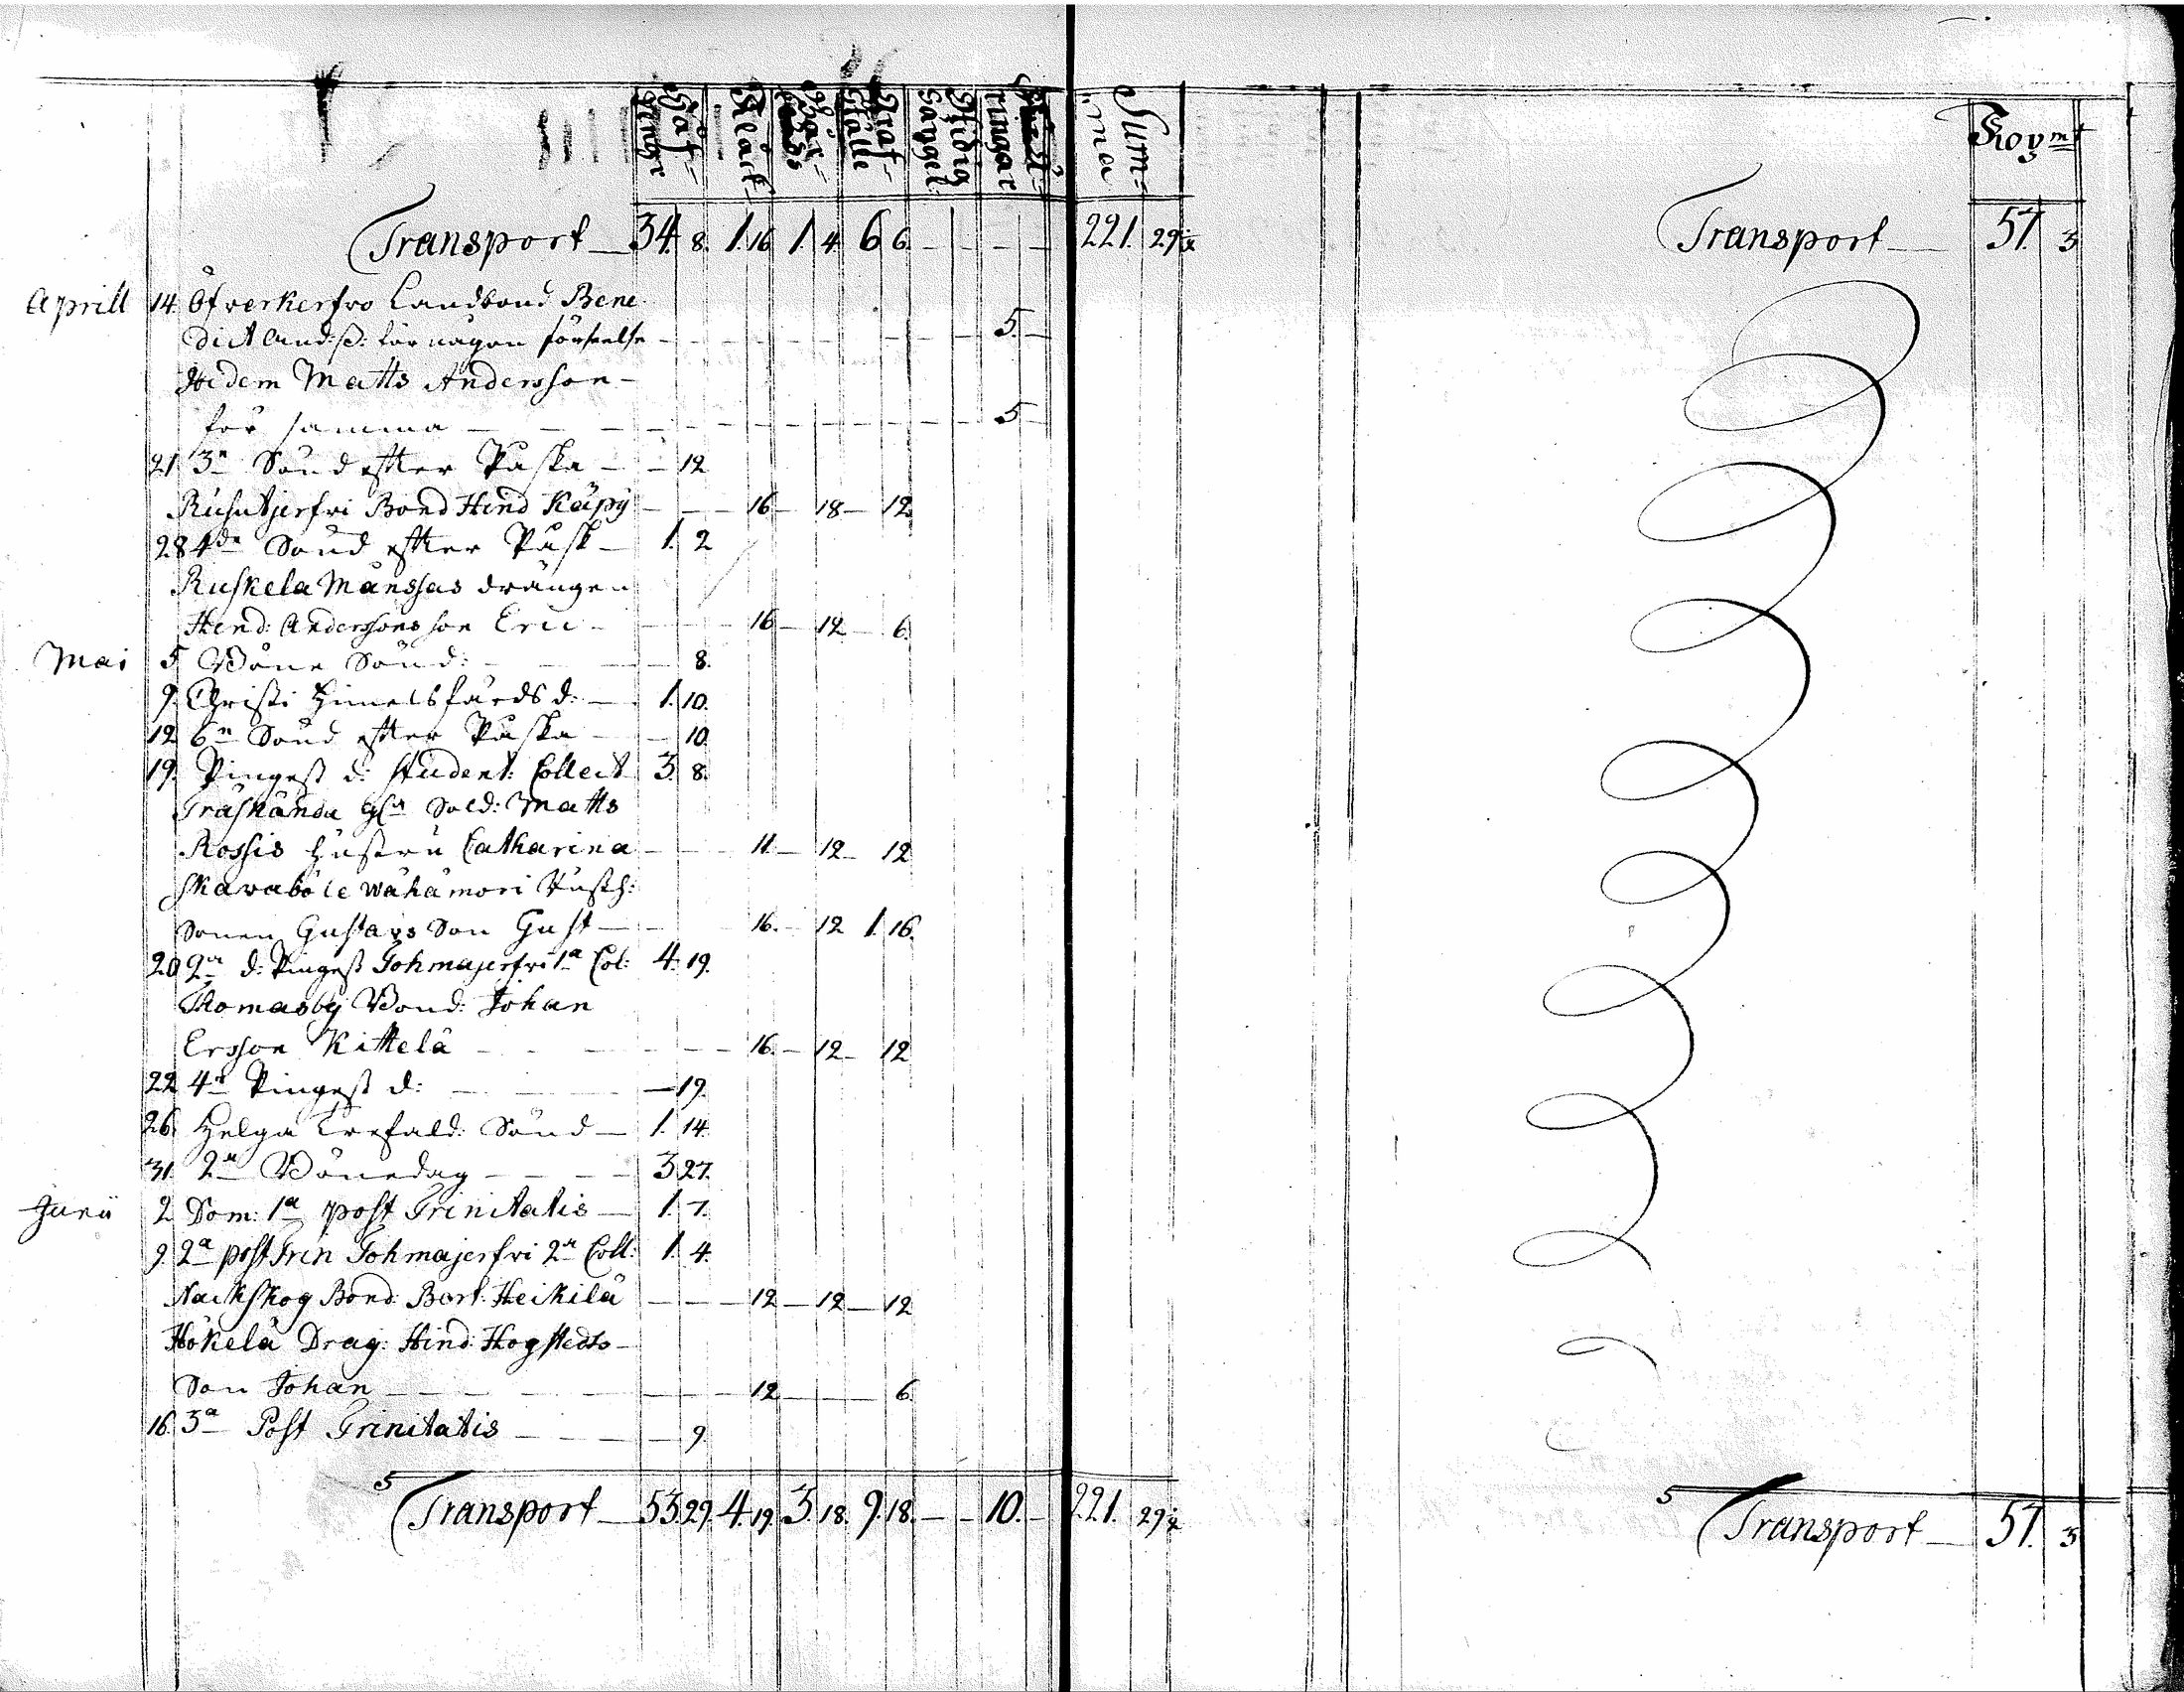 Håf-penngr Klåck Bår-kläde Graf-ställe Städig sängel ringar Sum-ma
Transport 34. 8. 1. 16 1. 4. 6 6. 221. 29½
Aprill 14. Öfverkerfvo Landbond Bene
dict Andß: för någon förseelse 5.
Itidem Matts Andersson
för samma 5
21 3e Sönd efter Påska 12
Bond Hind Käpÿ 16 18 12
28 4de Sönd efter Påsk 1. 2
Ruskela Månssas drängen
Hend: Anderssons son Eric 16 12 6.
Mai 5 Böne Sönd: 8.
9. Christi Himelsfärds d: 1. 10.
12 6te Sönd efter Påska 10
19. Pingest d: Student: Collect 3. 8.
Träskända Sold: Matts
Rossis Hustru Catharina 11 12 12
Skavaböle Wähämori
Sonen Gustavs Son Gust 16. 12 1. 16.
20 2a d: Pingest Tohmajerfvi 1a Col: 4. 19.
Thomasby Bond: Johan
Ersson Kittelä 16. 12 12
22 4e Pingest d: 19.
26. Helga Trefald: Sönd 1. 14.
31. 2a Bönedag 3 27.
Junii 2 Dom: 1a post Trinitatis 1. 7.
9. 2a post Trin Tohmajerfvi 2a Coll: 1. 4.
Nackskog Bond: Bert: Heikilä 12 12 12
Hökelä Drag: Hind: Hogstedts
Son Johan 12 6
16. 3a Post Trinitatis 9.
Transport 53. 29. 4. 19. 3. 18. 9. 18. 10. 221. 29½
Transport 57. 3
Transport 57. 3